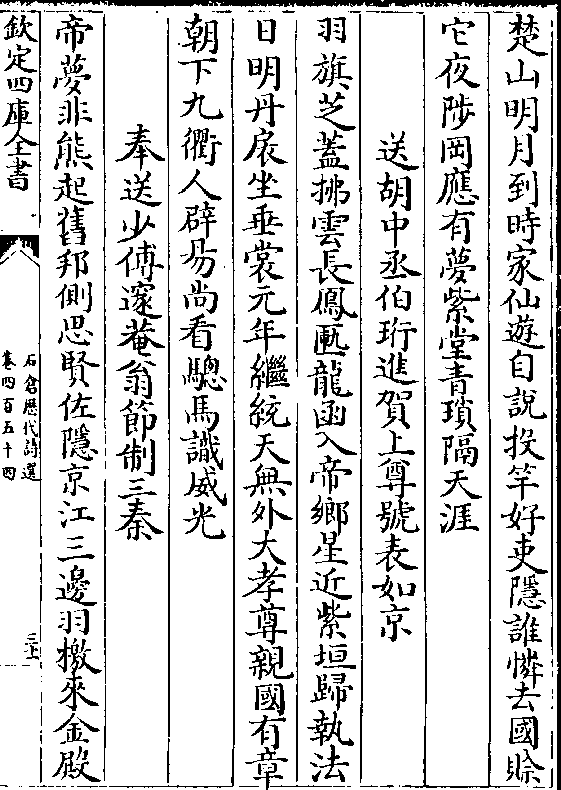 楚山明月到時家仙遊自說投竿好吏隱誰憐去國賖
它夜陟岡應有夢紫堂青瑣隔天涯
送胡中丞伯珩進賀上尊號表如京
羽旗芝蓋拂雲長鳳匭龍函入帝鄉星近紫垣歸執法
日明丹扆坐垂裳元年繼統天無外大孝尊親國有章
朝下九衢人辟易尚看驄馬識威光
奉送少傅邃菴翁節制三秦
帝夢非熊起舊邦側思賢佐隱京江三邊羽檄來金殿
欽定四庫全書
石倉歷代詩選
卷四百五十四